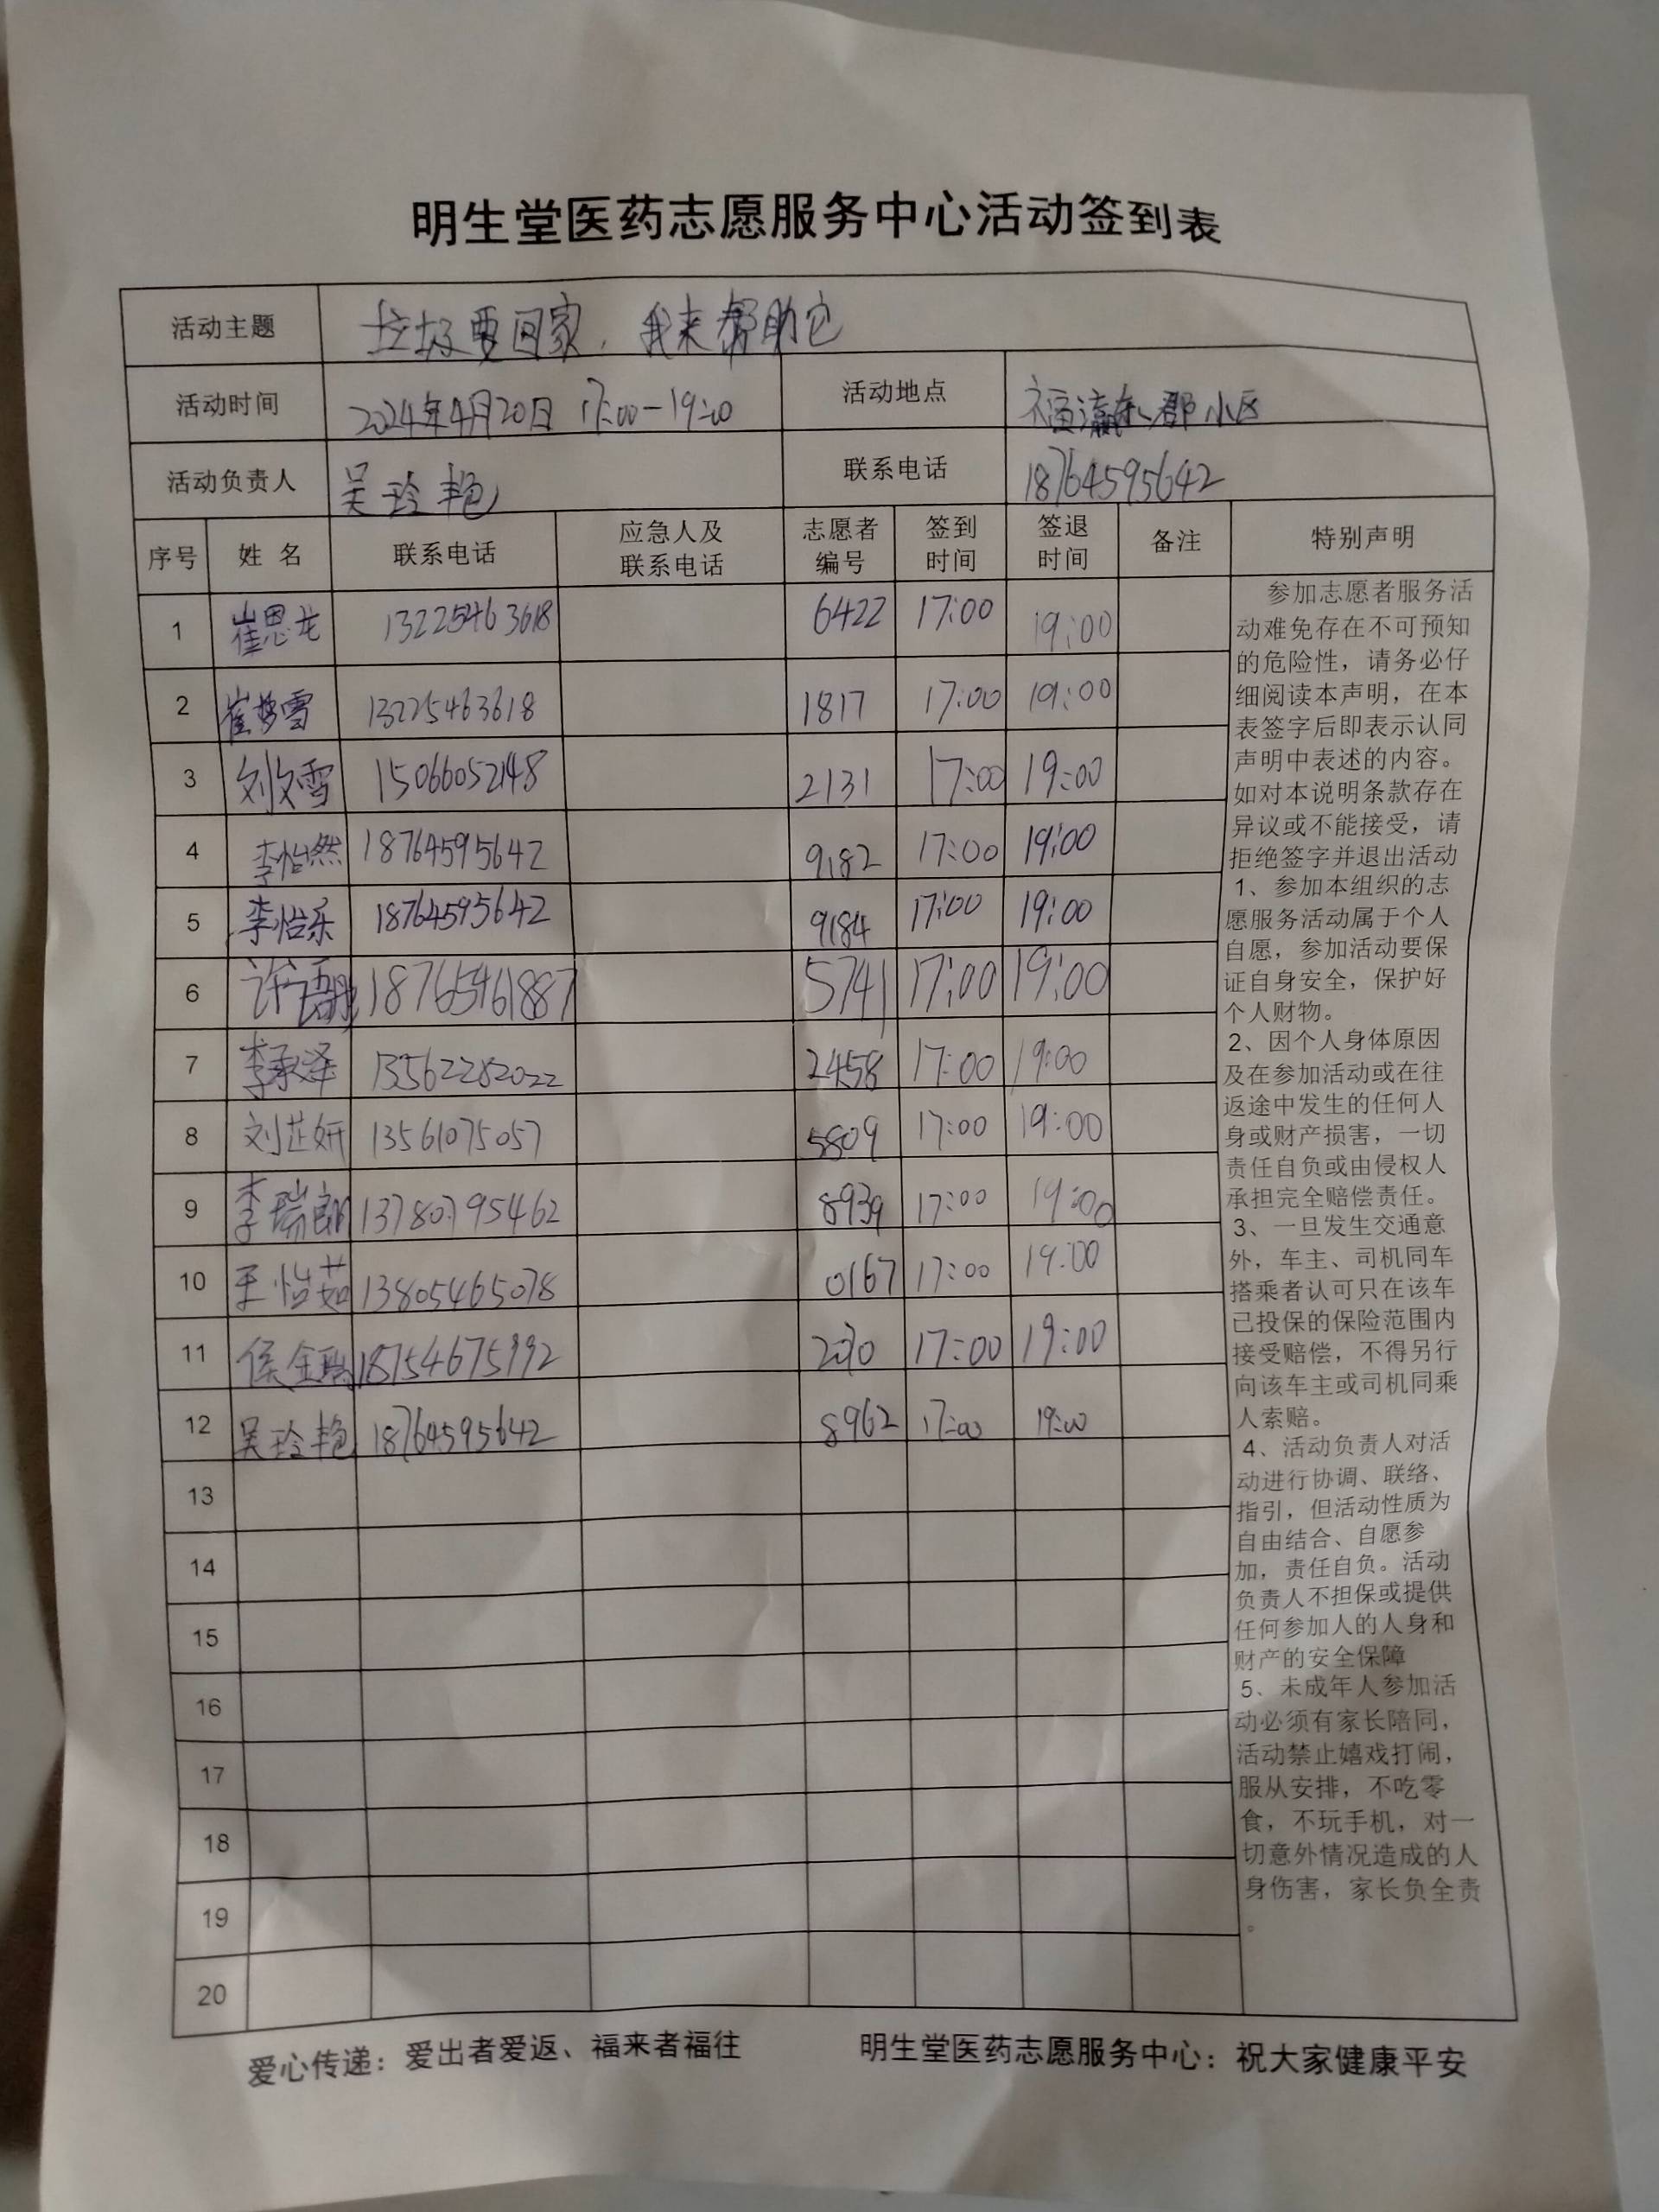 明生堂医药志愿服务中心活动签到表
活动主题 垃圾要回家，我来帮助它
活动时间 2024年4月20日 17:00-19:00 活动地点 福瀛东郡小区
活动负责人 吴玲艳 联系电话 18764595642
序号 姓名 联系电话 应急人及联系电话 志愿者编号 签到时间 签退时间 备注 特别声明
1 崔恩龙 13225463618 6422 17:00 19:00
2 崔梦雪 13225463618 1817 17:00 19:00
3 刘文雪 15066052148 2131 17:00 19:00
4 李怡然 18764595642 9182 17:00 19:00
5 李怡乐 18764595642 9184 17:00 19:00
6 许语彤 18765461887 5741 17:00 19:00
7 李承泽 13562282022 2458 17:00 19:00
8 刘芷妍 13561075057 5809 17:00 19:00
9 李瑞朗 13780795462 8939 17:00 19:00
10 王怡茹 13805465078 0167 17:00 19:00
11 侯金 18754675992 17:00 19:00
12 吴玲艳 18764595642 8962 17:00 19:00
13
14
15
16
17
18
19
20
参加志愿者服务活
动难免存在不可预知
的危险性，请务必仔
细阅读本声明，在本
表签字后即表示认同
声明中表述的内容。
如对本说明条款存在
异议或不能接受，请
拒绝签字并退出活动
1、参加本组织的志
愿服务活动属于个人
自愿，参加活动要保
证自身安全，保护好
个人财物。
2、因个人身体原因
及在参加活动或在往
返途中发生的任何人
身或财产损害，一切
责任自负或由侵权人
承担完全赔偿责任。
3、一旦发生交通意
外，车主、司机同车
搭乘者认可只在该车
已投保的保险范围内
接受赔偿，不得另行
向该车主或司机同乘
人索赔。
4、活动负责人对活
动进行协调、联络、
指引，但活动性质为
自由结合、自愿参
加，责任自负。活动
负责人不担保或提供
任何参加人的人身和
财产的安全保障
5、未成年人参加活
动必须有家长陪同，
活动禁止嬉戏打闹，
服从安排，不吃零
食，不玩手机，对一
切意外情况造成的人
身伤害，家长负全责
。
爱心传递：爱出者爱返、福来者福往 明生堂医药志愿服务中心：祝大家健康平安